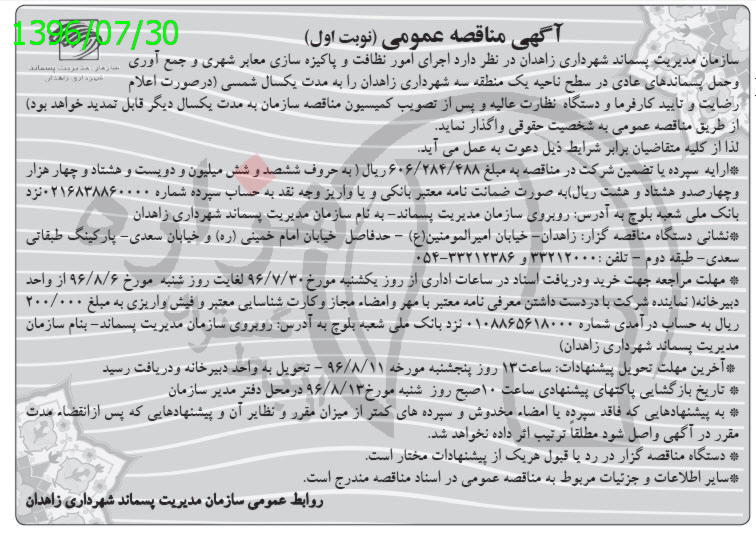 1396/07/30
آگهی مناقصه عمومی (نوبت اول)
سازمان مدیریت پسماند
شهرداری زاهدان
سازمان مدیریت پسماند شهرداری زاهدان در نظر دارد اجرای امور نظافت و پاکیزه سازی معابر شهری و جمع آوری
وحمل پسماندهای عادی در سطح ناحیه یک منطقه سه شهرداری زاهدان را به مدت یکسال شمسی (درصورت اعلام
رضایت و تایید کارفرما و دستگاه نظارت عالیه و پس از تصویب کمیسیون مناقصه سازمان به مدت یکسال دیگر قابل تمدید خواهد بود)
از طریق مناقصه عمومی به شخصیت حقوقی واگذار نماید.
لذا از کلیه متقاضیان برابر شرایط ذیل دعوت به عمل می آید.
*ارایه سپرده یا تضمین شرکت در مناقصه به مبلغ ۶۰۶/۲۸۴/۴۸۸ ریال ( به حروف ششصد و شش میلیون و دویست و هشتاد و چهار هزار
وچهارصدو هشتاد و هشت ریال)به صورت ضمانت نامه معتبر بانکی و یا واریز وجه نقد به حساب سپرده شماره ۰۲۱۶۸۳۸۸۶۰۰۰۰نزد
بانک ملی شعبه بلوچ به آدرس: روبروی سازمان مدیریت پسماند- به نام سازمان مدیریت پسماند شهرداری زاهدان
*نشانی دستگاه مناقصه گزار: زاهدان- خیابان امیرالمومنین(ع) - حدفاصل خیابان امام خمینی (ره) و خیابان سعدی- پارکینگ طبقاتی
سعدی- طبقه دوم - تلفن :۳۳۲۱۲۰۰۰ و ۳۳۲۱۲۳۸۶-۰۵۴
* مهلت مراجعه جهت خرید ودریافت اسناد در ساعات اداری از روز یکشنبه مورخ۹۶/۷/۳۰ لغایت روز شنبه مورخ ۹۶/۸/۶ از واحد
دبیرخانه( نماینده شرکت با دردست داشتن معرفی نامه معتبر با مهر وامضاء مجاز وکارت شناسایی معتبر و فیش واریزی به مبلغ ۲۰۰/۰۰۰
ریال به حساب درآمدی شماره ۰۱۰۸۸۶۵۶۱۸۰۰۰ نزد بانک ملی شعبه بلوچ به آدرس: روبروی سازمان مدیریت پسماند- بنام سازمان
مدیریت پسماند شهرداری زاهدان)
*آخرین مهلت تحویل پیشنهادات: ساعت۱۳ روز پنجشنبه مورخه ۹۶/۸/۱۱ - تحویل به واحد دبیرخانه ودریافت رسید
* تاریخ بازگشایی پاکتهای پیشنهادی ساعت ۱۰صبح روز شنبه مورخ۹۶/۸/۱۳ درمحل دفتر مدیر سازمان
* به پیشنهادهایی که فاقد سپرده یا امضاء مخدوش و سپرده های کمتر از میزان مقرر و نظایر آن و پیشنهادهایی که پس ازانقضاء مدت
مقرر در آگهی واصل شود مطلقاً ترتیب اثر داده نخواهد شد.
* دستگاه مناقصه گزار در رد یا قبول هریک از پیشنهادات مختار است.
*سایر اطلاعات و جزئیات مربوط به مناقصه عمومی در اسناد مناقصه مندرج است.
روابط عمومی سازمان مدیریت پسماند شهرداری زاهدان